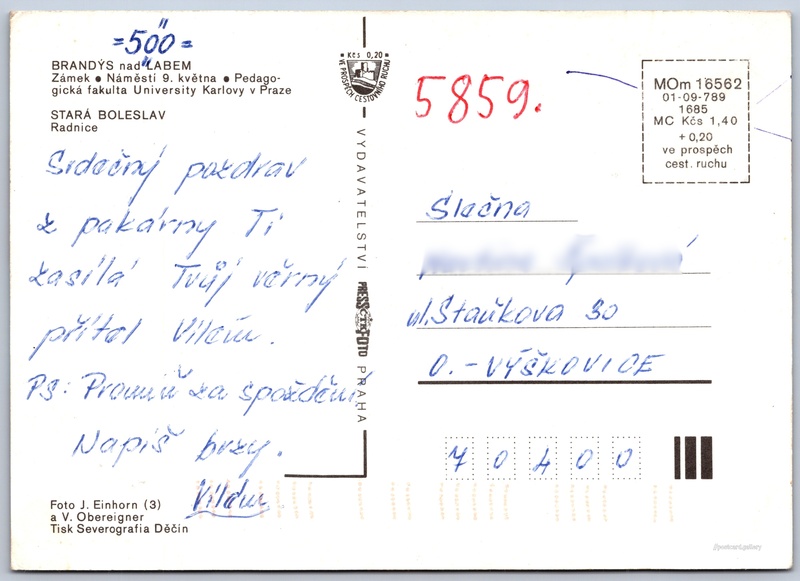 =500=
BRANDÝS nad LABEM
Zámek ● Náměstí 9. května ● Pedago-
gická fakulta University Karlovy v Praze
STARÁ BOLESLAV
Radnice
Srdečný pozdrav
z pakárny Ti
zasílá Tvůj věrný
přítel Vilém.
PS: Promiň za spoždění
Napiš brzy.
Vilém
Foto J. Einhorn (3)
a V. Obereigner
Tisk Severografia Děčín
Kčs 0,20
VE PROSPĚCH CESTOVNÍHO RUCHU
VYDAVATELSTVÍ PRESSFOTO PRAHA
ČTK
5859.
MOm 16562
01-09-789
1685
MC Kčs 1,40
+ 0,20
ve prospěch
cest. ruchu
Slečna
ul. Staňkova 30
O.-VÝŠKOVICE
70400